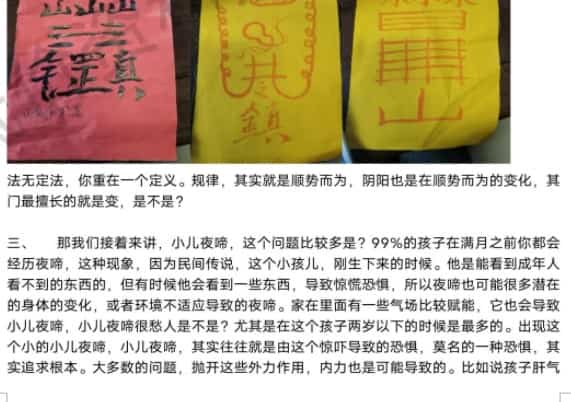 鎮
山
法无定法，你重在一个定义。规律，其实就是顺势而为，阴阳也是在顺势而为的变化，其
门最擅长的就是变，是不是？
三、 那我们接着来讲，小儿夜啼，这个问题比较多是？99%的孩子在满月之前你都会
经历夜啼，这种现象，因为民间传说，这个小孩儿，刚生下来的时候。他是能看到成年人
看不到的东西的，但有时候他会看到一些东西，导致惊慌恐惧，所以夜啼也可能很多潜在
的身体的变化，或者环境不适应导致的夜啼。家在里面有一些气场比较赋能，它也会导致
小儿夜啼，小儿夜啼很愁人是不是？尤其是在这个孩子两岁以下的时候是最多的。出现这
个小的小儿夜啼，小儿夜啼，其实往往就是由这个惊吓导致的恐惧，莫名的一种恐惧，其
实追求根本。大多数的问题，抛开这些外力作用，内力也是可能导致的。比如说孩子肝气